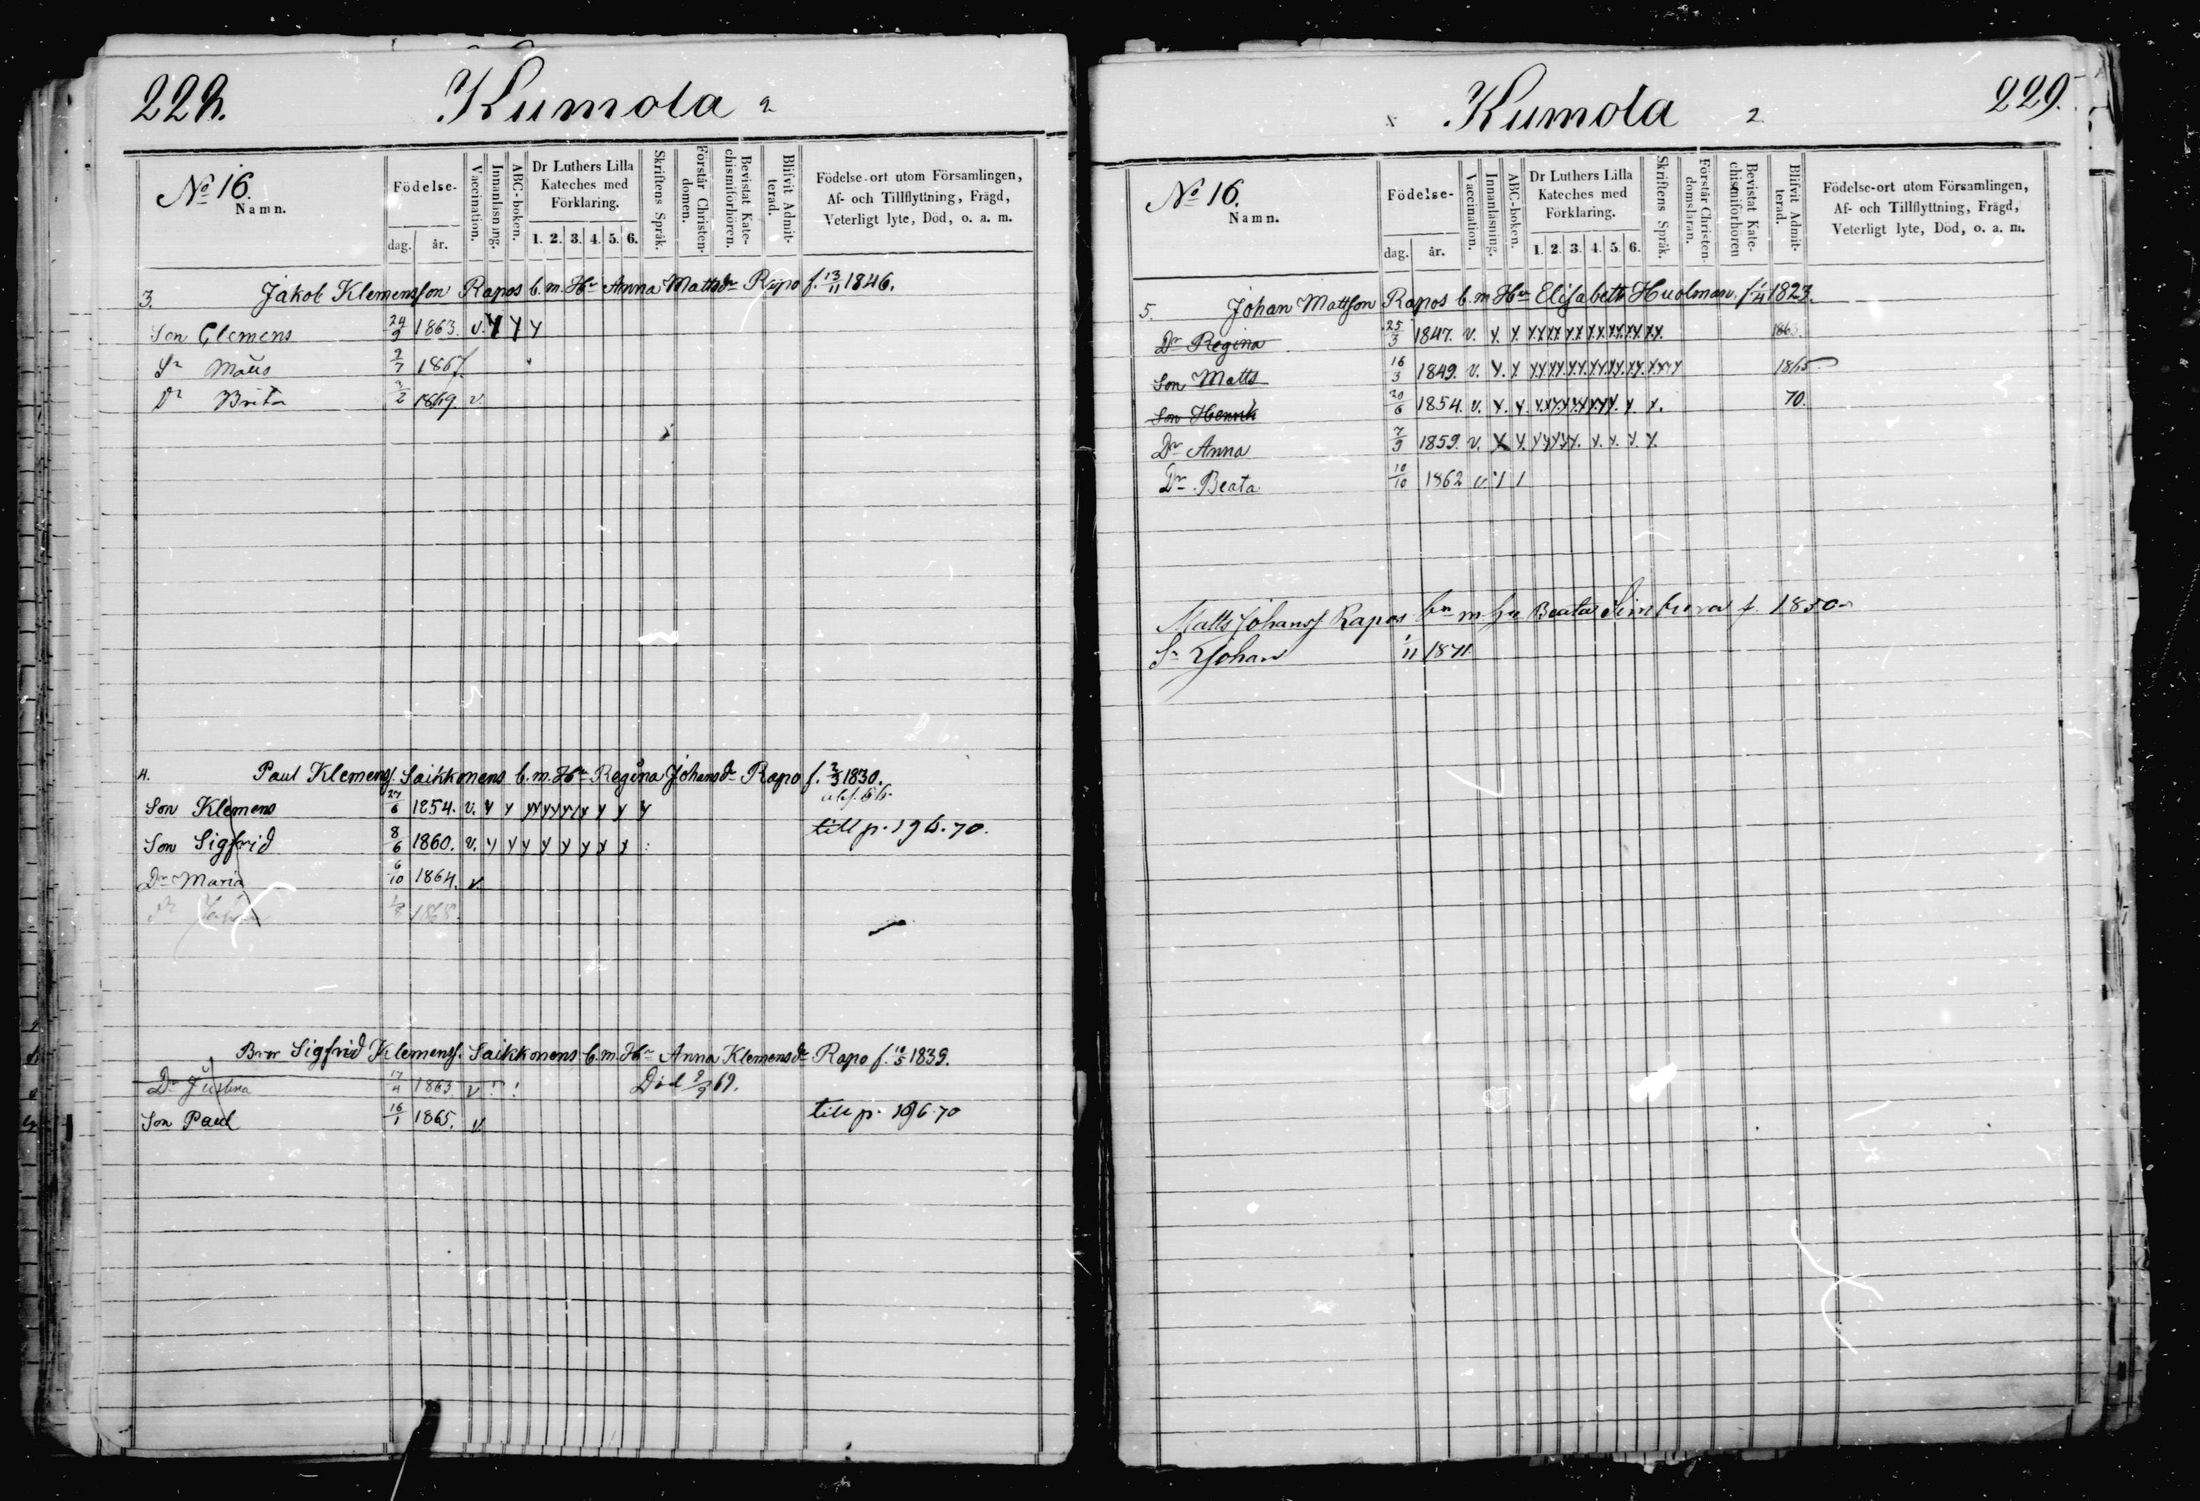 228.
Kumola 2
No 16.
Namn.
Födelse-
dag. år.
Vaccination.
Innanläsning.
ABC-boken.
Dr Luthers Lilla Kateches med Förklaring.
1. 2. 3. 4. 5. 6.
Skriftens Språk.
Förstår Christen-domen.
Bevistat Kate-chismiförhören.
Blifvit Admit-terad.
Födelse-ort utom Församlingen,
Af- och Tillflyttning, Frägd,
Veterligt lyte, Död, o. a. m.
3. Jakob Klemensson Rapos b. m. Hu Anna Mattsdr Rapo f. 13/11 1846.
Son Clemens 24/9 1863. v. y y y
Sn 2/7 1867.
Dr Brita 2/2 1869. v.
4. Paul Klemenss. Saikkonens b. m. Hu Regina Johansdr Rapo f. 2/3 1830.
Son Klemens 27/6 1854. v. y y yy yy yy y y y y
Son Sigfrid 8/6 1860. v. y y y y y y y y till p. 196. 70.
Dr Maria 6/10 1864. v.
1868.
Bror Sigfrid Klemenss. Saikkonens b. m. Hu Anna Klemensdr Rapo f. 10/5 1839.
Dr Justina 17/4 1863. v ! ! Död 9/9 69.
Son Paul 16/1 1865. v. till p. 196. 70
Kumola 2
229.
No 16.
Namn.
Födelse-
dag. år.
Vaccination.
Innanläsning.
ABC-boken.
Dr Luthers Lilla Kateches med Förklaring.
1. 2. 3. 4. 5. 6.
Skriftens Språk.
Förstår Christen-domsläran.
Bevistat Kate-chismiförhören
Blifvit Admit-terad.
Födelse-ort utom Församlingen,
Af- och Tillflyttning, Frägd,
Veterligt lyte, Död, o. a. m.
5. Johan Mattsson Rapos b. m. Hu Elisabeth Huolman f. 1/4 1823.
Dr Regina 25/3 1847. v. y. y. yy yy yy yy yy yy yy.
Son Matts 16/3 1849. v. y. y yy yy yy yy yy yy yyy 1865
Son Henrik 20/6 1854. v. y. y. yy yy yy yy y. y. 70.
Dr Anna 7/9 1859. v. y y. yy yy y. y. y. y. y.
Dr Beata 10/10 1862 v. / /
Matts Johanss Rapos bn m hu Beata f. 1850
Sn Johan 1/11 1871